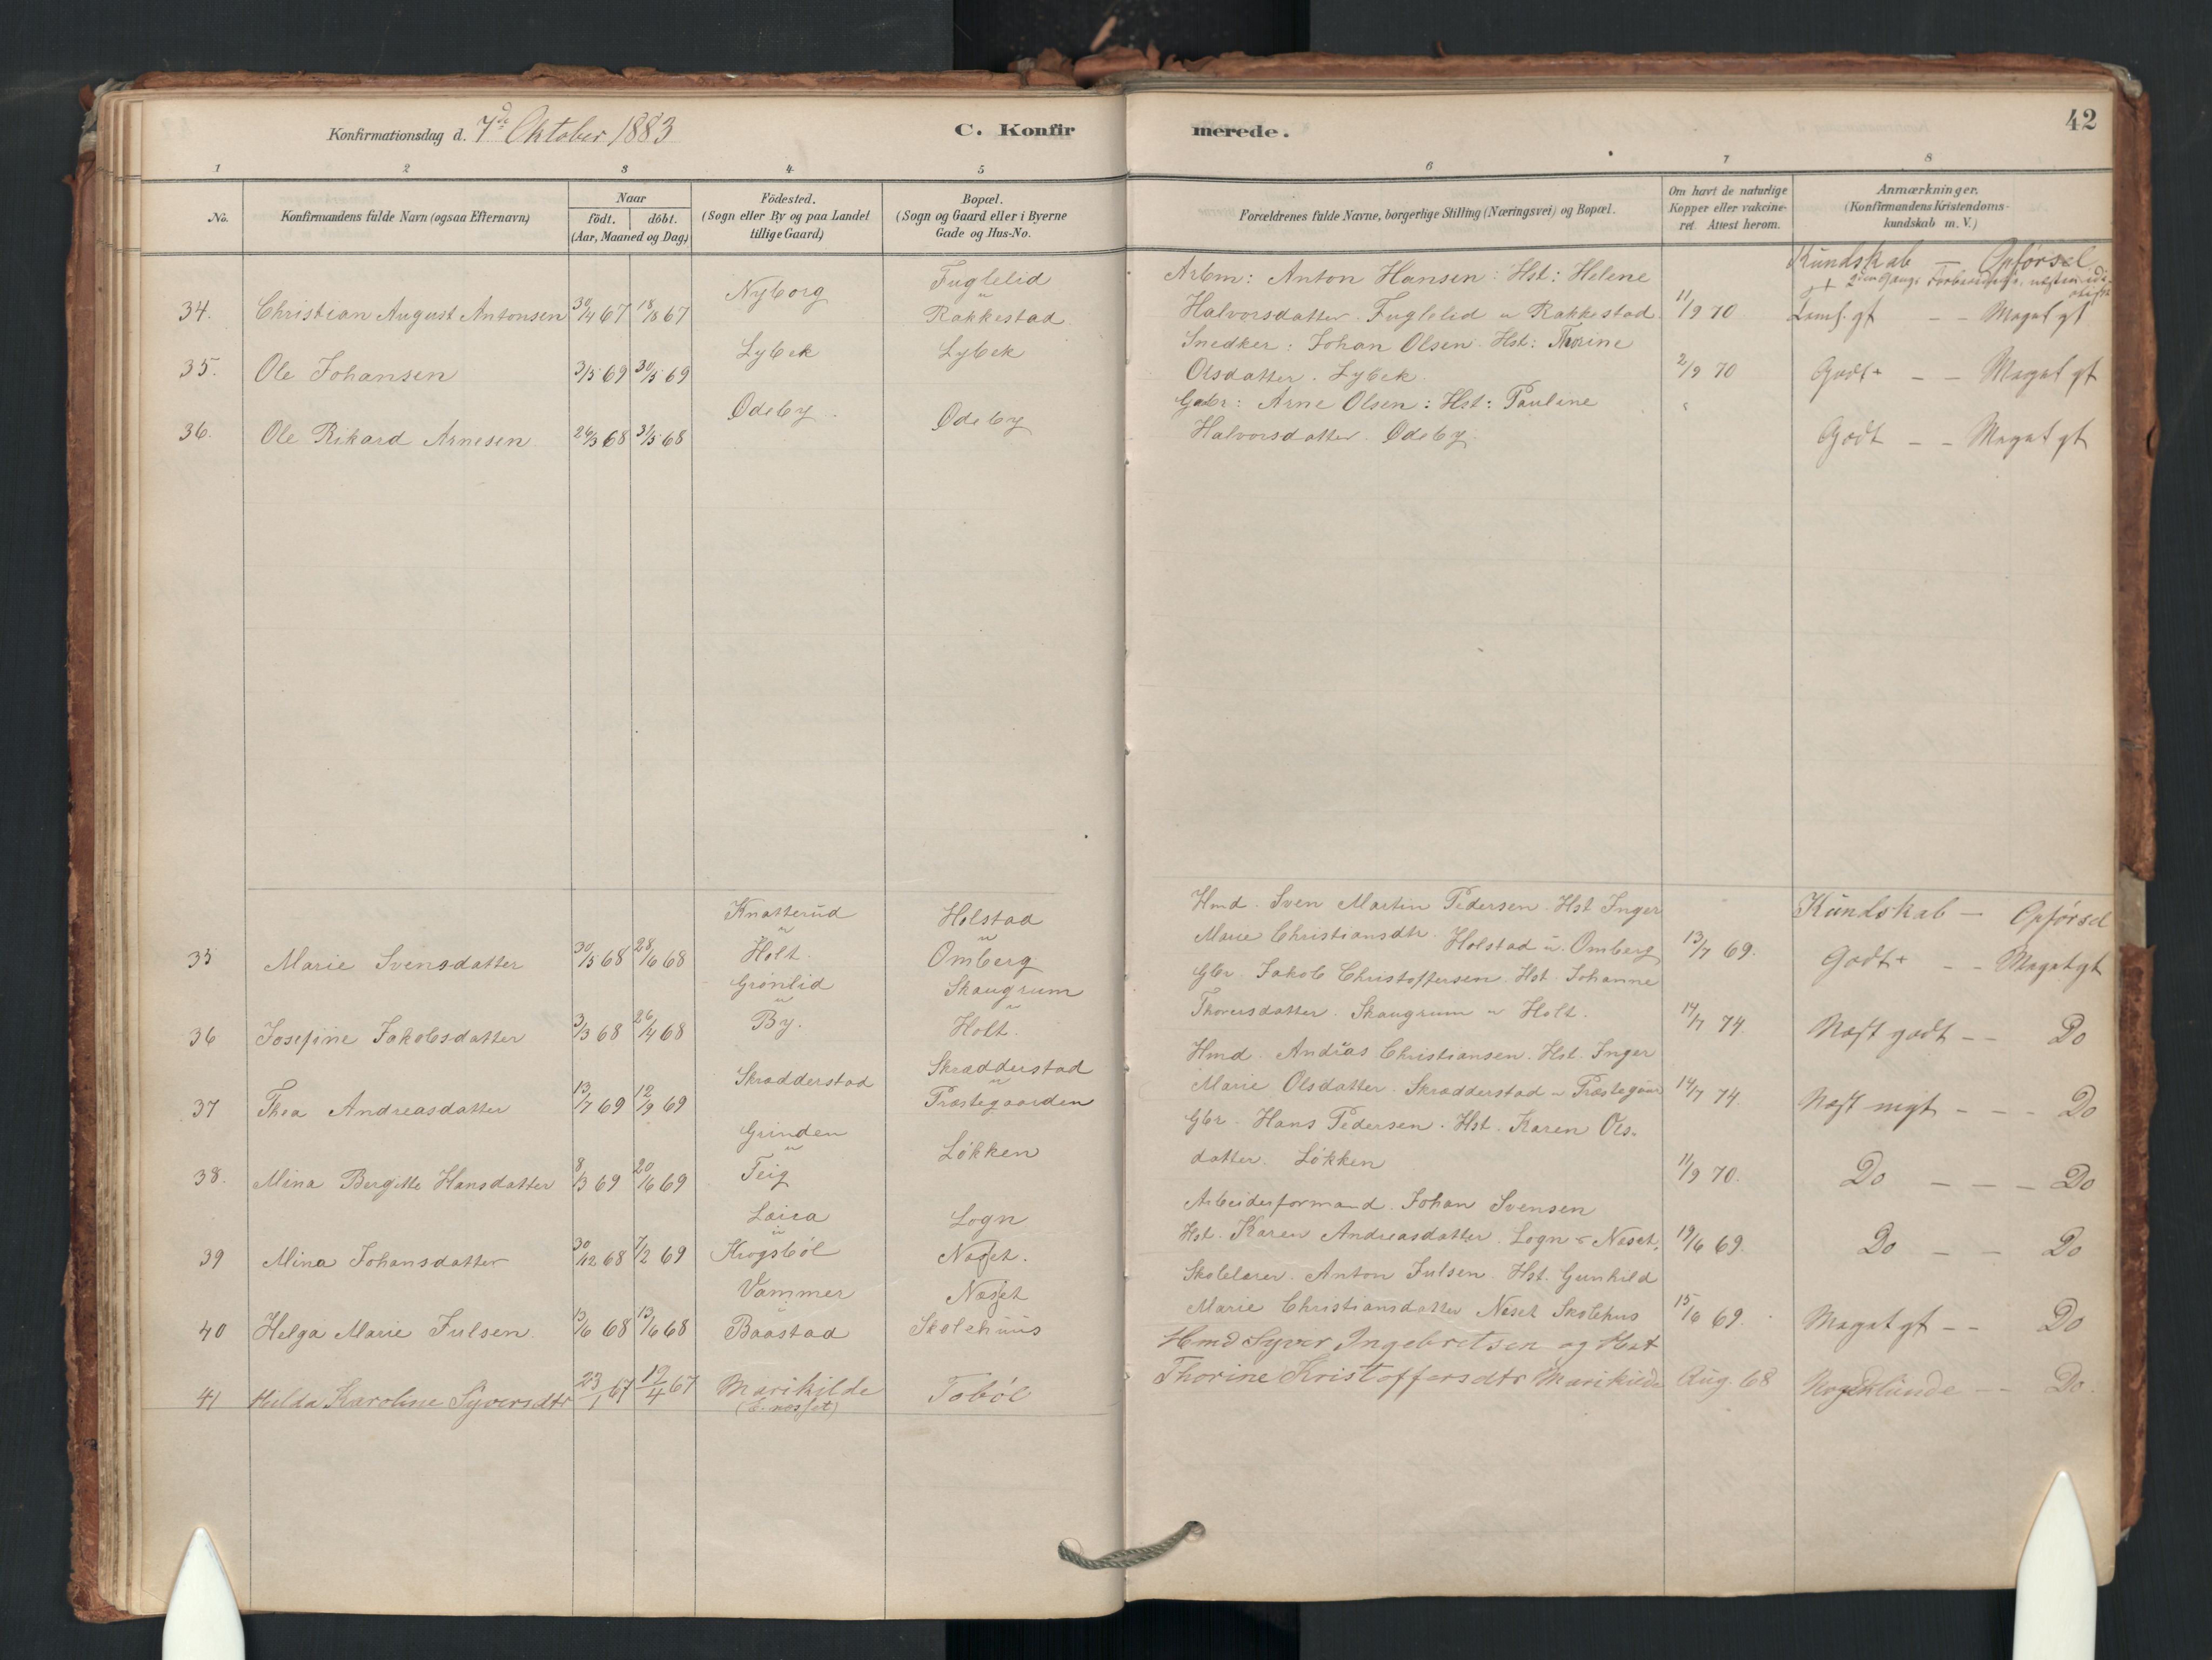 Konfirmationsdag d. 7de Oktober 1883
C. Konfir
merede.
42
1 2 3 4 5 6 7 8
No.
Konfirmandens fulde Navn (ogsaa Efternavn)
Naar
födt. döbt.
(Aar, Maaned og Dag)
Födested.
(Sogn eller By og paa Landet
tillige Gaard)
Bopæl.
(Sogn og Gaard eller i Byerne
Gade og Hus-No.
Forældrenes fulde Navne, borgerlige Stilling (Næringsvei) og Bopæl.
Om havt de naturlige
Kopper eller vakcine-
ret. Attest herom.
Anmærkninger.
(Konfirmandens Kristendoms-
kundskab m. V.)
Kundskab — Opførsel
34. Christian August Antonsen 30/4 67 18/8 67
Nyborg
Fuglelid
u
Rakkestad
Arbm: Anton Hansen: Hst: Helene
Halvorsdatter. Fuglelid u Rakkestad.
11/9 70
gt — — Meget gt
35. Ole Johansen 3/5 69 30/5 69
Lybek
Lybek
Snedker: Johan Olsen. Hst: Thorine
Olsdatter. Lybek
2/9 70
Godt+ — — Meget gt
36. Ole Rikard Arnesen 26/3 68 31/5 68
Ødeby
Ødeby
Gbr: Arne Olsen: Hst: Pauline
Halvorsdatter. Ødeby.
Godt — — Meget gt
Kundskab — Opførsel
35 Marie Svensdatter 30/5 68 28/6 68
Knatterud
u
Holt.
Holstad
u
Omberg
Hmd. Sven Martin Pedersen. Hst Inger
Marie Christiansdtr. Holstad u. Omberg
13/7 69.
Godt+ — — Meget gt
36 Josefine Jakobsdatter 3/3 68 26/4 68
Grønlid
u
By.
Skaugrum
u
Holt.
Gbr. Jakob Christoffersen. Hst. Johanne
Thoversdatter. Skaugrum u Holt.
14/7 74.
Næst godt — — Do
37 Thea Andreasdatter 13/7 69 12/9 69
Skradderstad
Skrædderstad
u
Præstegaarden
Hmd. Andras Christiansen. Hst. Inger
Marie Olsdatter. Skradderstad u Præstegaar
14/7 74.
Næst mgt — — — Do
38. Mina Bergitte Hansdatter 8/3 69 20/6 69
Grinden
u
Teig
Løkken
Gbr. Hans Pedersen. Hst. Karen Ols-
datter. Løkken
11/9 70.
Do — — — Do
39 Mina Johansdatter 30/12 68 7/2 69
u
Krogsbøl
Logn
Næset.
Arbeiderformand. Johan Svensen
Hst. Karen Andreasdatter. Logn u Neset.
19/6 69.
Do — — Do
40 Helga Marie Julsen. 13/6 68 13/6 68
Vammer
u
Baastad
Næset
Skolehuus
Skolelærer. Anton Julsen. Hst. Gunhild
Marie Christiansdatter Neset Skolehus
15/6 69.
Meget gt — — Do
41 Hilda Karoline Syversdtr 23/1 67 19/4 67
Marikilde
Tobøl
Hmd Syver Ingebretsen og Hst
Thorine Kristoffersdtr Marikilde
Aug. 68
— — Do.